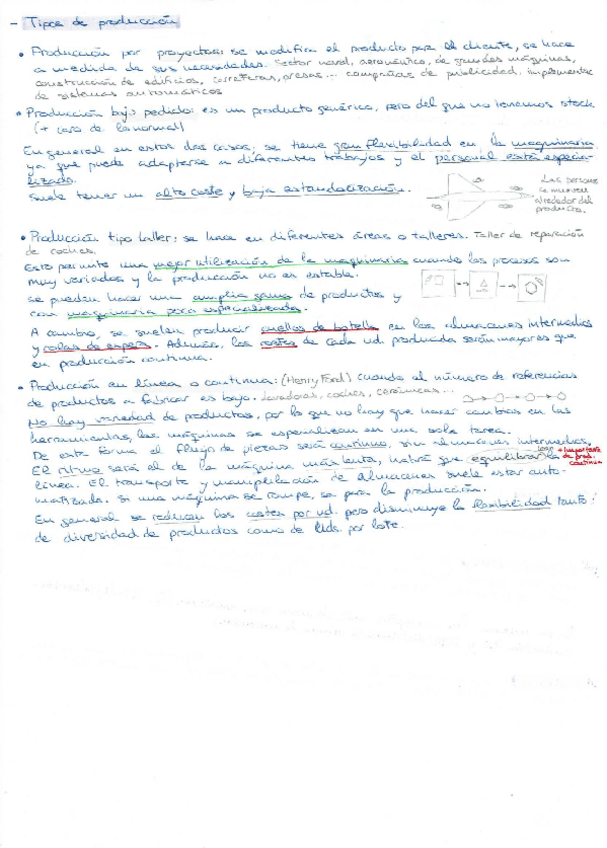 - Tipos de producción
• Producción por proyectos: se modifica el producto para el cliente, se hace
a medida de sus necesidades. Sector naval, aeronáutico, de grandes máquinas,
construcción de edificios, carreteras, presas... campañas de publicidad, implementac
de sistemas automáticos
• Producción bajo pedido: es un producto genérico, pero del que no tenemos stock
(+ caro de lo normal)
En general en estos dos casos, se tiene gran flexibilidad en la maquinaria
ya que puede adaptarse a diferentes trabajos y el personal está especia-
lizado.
Suele tener un alto coste y baja estandarización.
Las personas
se mueven
alrededor del
producto.
• Producción tipo taller: se hace en diferentes áreas o talleres. Taller de reparación
de coches.
Esto permite una mejor utilización de la maquinaria cuando los procesos son
muy variados y la producción no es estable.
Se pueden hacer una amplia gama de productos y
con maquinaria poco especializada.
A cambio, se suelen producir cuellos de botella en los almacenes intermedios
y colas de espera. Además, los costes de cada ud. producida serán mayores que
en producción continua.
• Producción en línea o continua: (Henry Ford) cuando el número de referencias
de productos a fabricar es bajo. Lavadoras, coches, cerámicas...
No hay variedad de productos, por lo que no hay que hacer cambios en las
herramientas, las máquinas se especializan en una sola tarea.
De esta forma el flujo de piezas será continuo, sin almacenes intermedios.
El ritmo será el de la máquina más lenta, habrá que equilibrar la
+ importante
de prod.
continua
línea. El transporte y manipulación de almacenes suele estar auto-
matizada. Si una máquina se rompe, se para la producción.
En general se reducen los costes por ud. pero disminuye la flexibilidad tanto
de diversidad de productos como de uds. por lote.